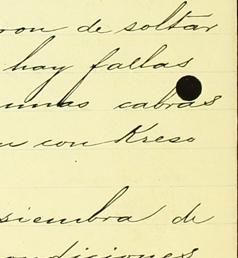 ron de soltar
hay fallas
unas cabras
n con Kreso
siembra de
ondiciones